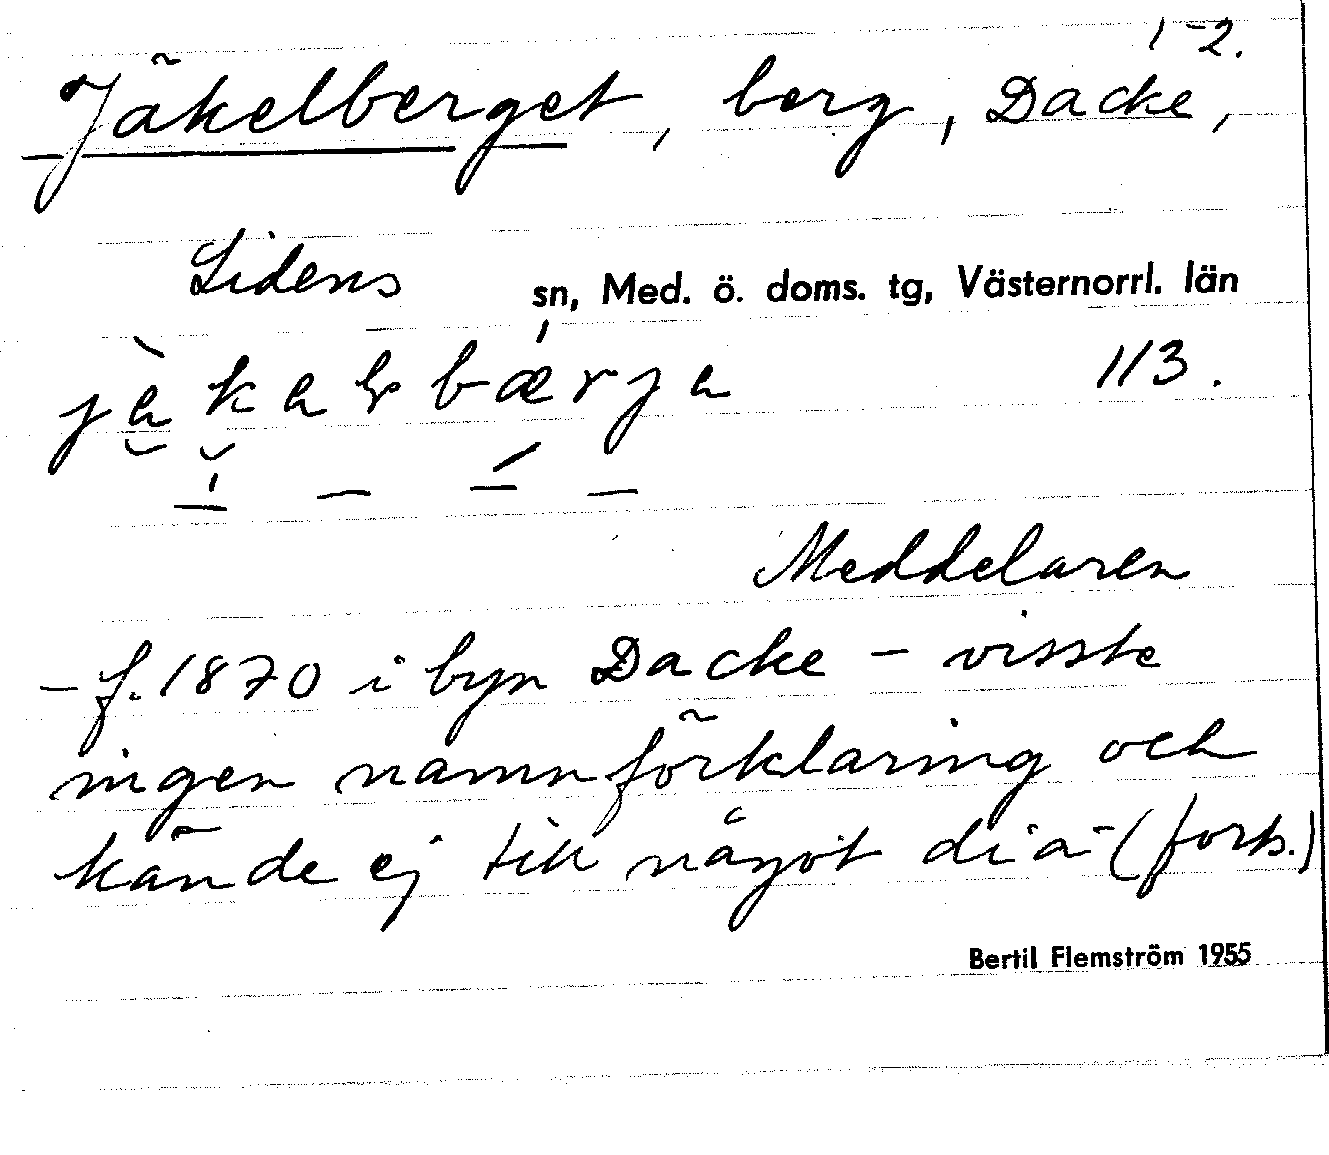 1-2.
Jäkelberget, berg, Dacke,
Lidens sn, Med. ö. doms. tg, Västernorrl. län
113.
Meddelaren
- f. 1870 i byn Dacke - visste
ingen namnförklaring och
kände ej till något dia- (forts.)
Bertil Flemström 1955